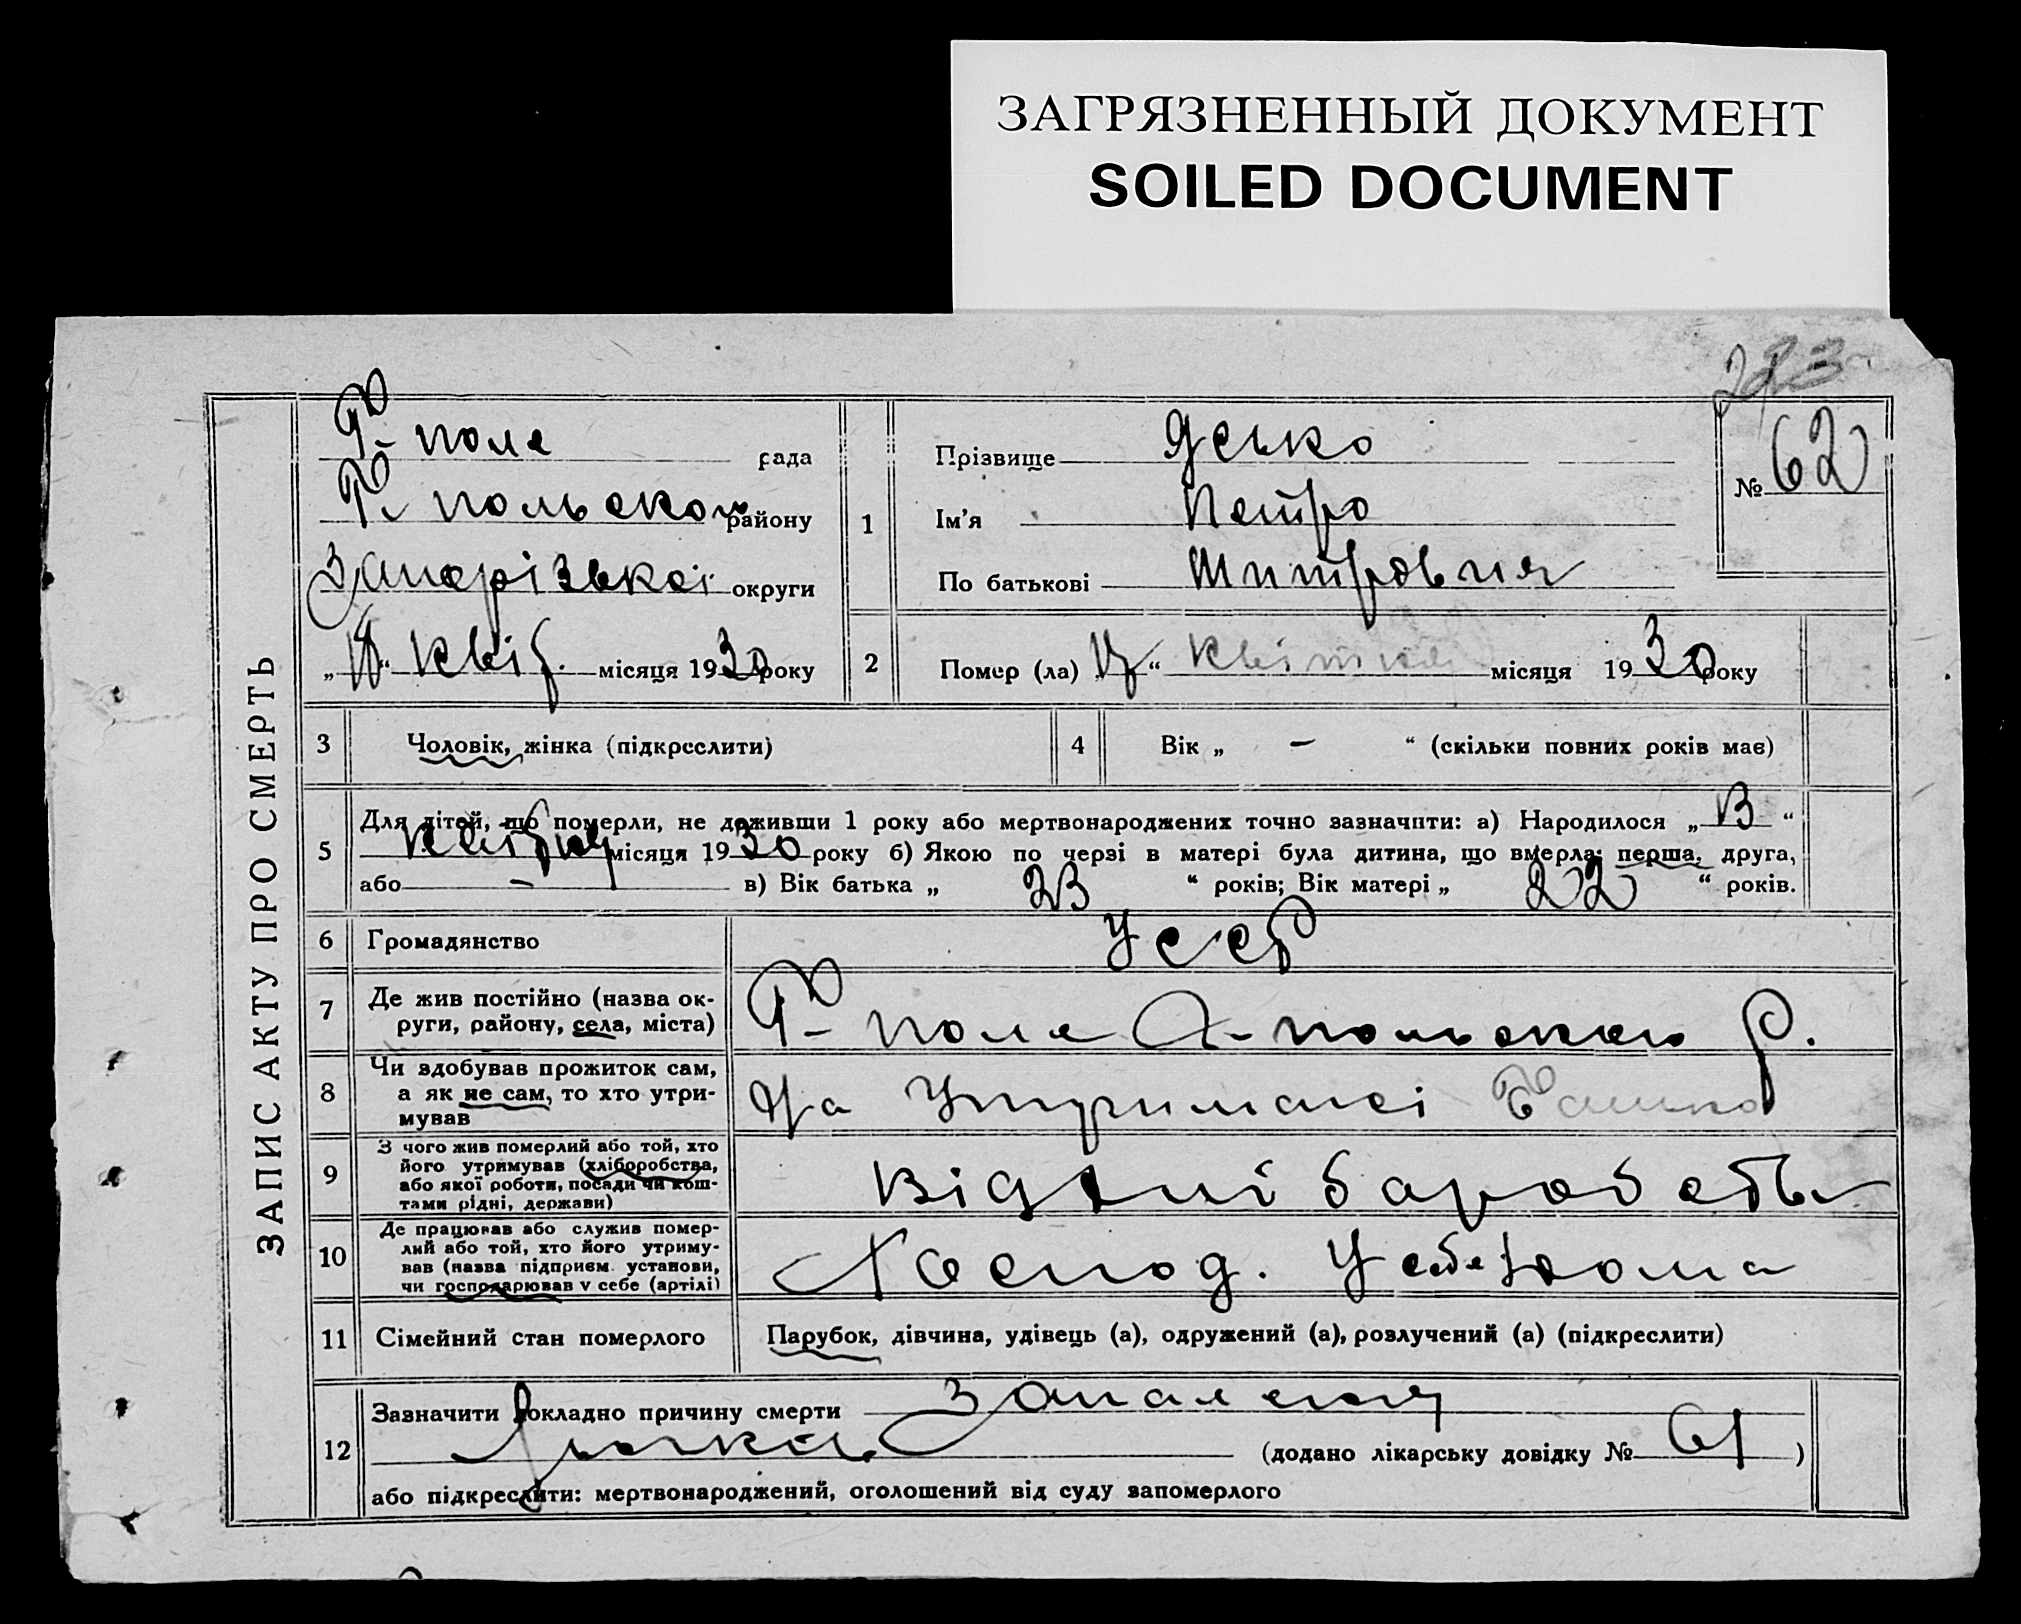 ЗАГРЯЗНЕННЫЙ ДОКУМЕНТ
SOILED DOCUMENT
283
ЗАПИС АКТУ ПРО СМЕРТЬ
поле рада
польской району
Запорізької округи
" " квіт. місяця 1930 року
1
Прізвище
Ім'я Петро
По батькові Митрович
№ 62
2 Помер (ла) " " квітня місяця 1930 року
3 Чоловік, жінка (підкреслити)
4 Вік „ — “ (скільки повних років має)
5 Для дітей, що померли, не доживши 1 року або мертвонароджених точно зазначити: а) Народилося „ “
квітня місяця 1930 року б) Якою по черзі в матері була дитина, що вмерла: перша, друга,
або — в) Вік батька „ 23 “ років; Вік матері „ 22 “ років.
6 Громадянство УССР
7 Де жив постійно (назва округи, району, села, міста) поле р.
8 Чи здобував прожиток сам, а як не сам, то хто утримував На утриманні Батька
9 З чого жив померлий або той, хто його утримував (хліборобства, або якої роботи, посади чи коштами рідні, держави) Від хліборобства
10 Де працював або служив померлий або той, хто його утримував (назва підприєм. установи, чи господарював у себе (артілі) Господ. У себе дома
11 Сімейний стан померлого Парубок, дівчина, удівець (а), одружений (а), розлучений (а) (підкреслити)
12 Зазначити докладно причину смерти Запалення
легких (додано лікарську довідку № 61)
або підкреслити: мертвонароджений, оголошений від суду запомерлого